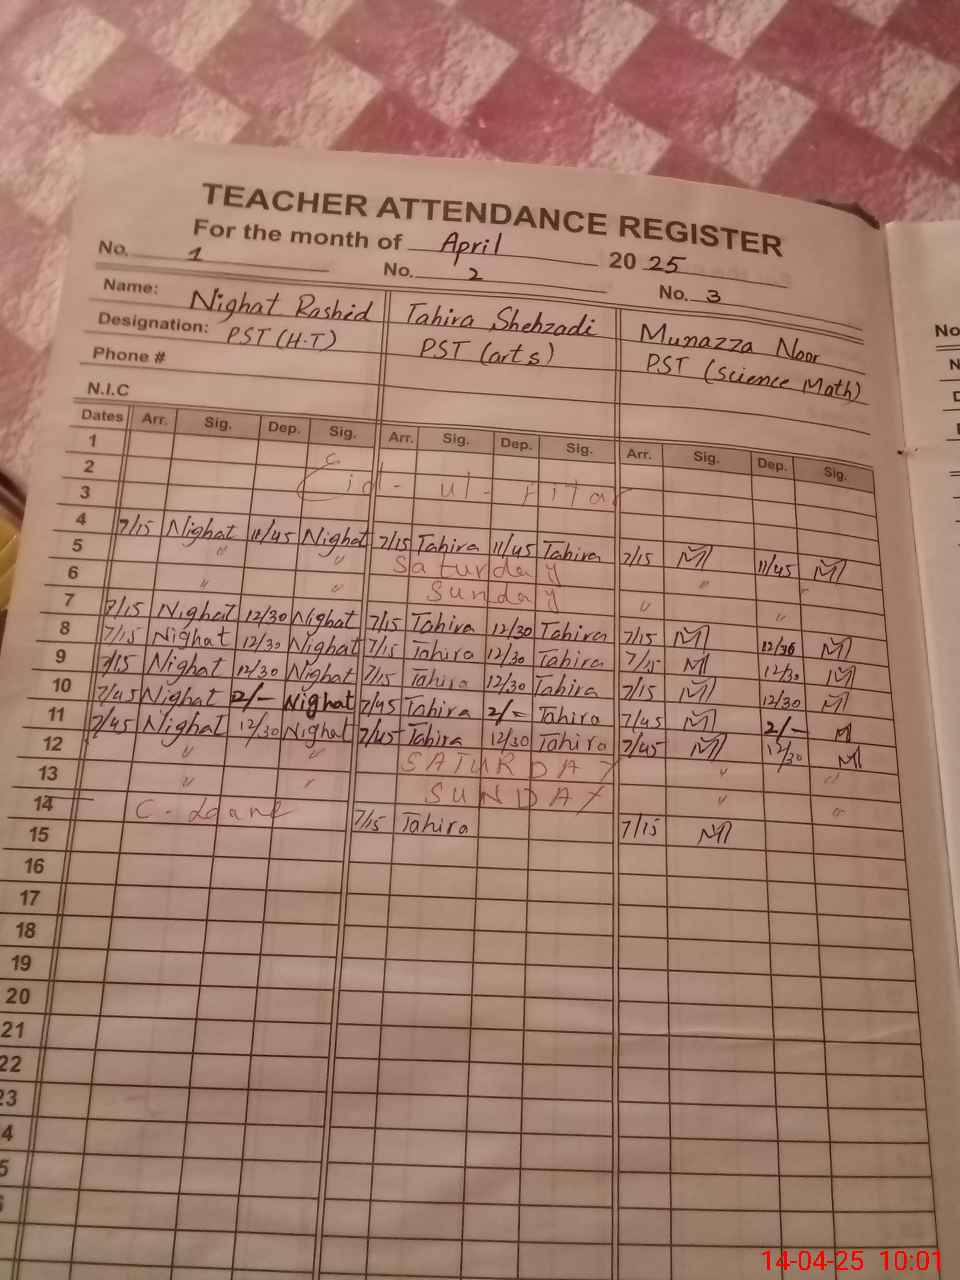 TEACHER ATTENDANCE REGISTER
For the month of April 2025
No. 1 No. 2 No. 3
Name: Nighat Rashid Tahira Shehzadi Munazza Noor
Designation: PST (H.T) PST (arts) PST (Science Math)
Phone #
N.I.C
Dates Arr. Sig. Dep. Sig. Arr. Sig. Dep. Sig. Arr. Sig. Dep. Sig.
1
2 Eid - ul - Fitar
3
4 7/15 Nighat 11/45 Nighat 7/15 Tahira 11/45 Tahira 7/15 11/45
5 " " Saturday " "
6 " " Sunday " "
7 7/15 Nighat 12/30 Nighat 7/15 Tahira 12/30 Tahira 7/15 12/30
8 7/15 Nighat 12/30 Nighat 7/15 Tahira 12/30 Tahira 7/15 12/30
9 7/15 Nighat 12/30 Nighat 7/15 Tahira 12/30 Tahira 7/15 12/30
10 7/45 Nighat 2/- Nighat 7/45 Tahira 2/- Tahira 7/45 2/-
11 7/45 Nighat 12/30 Nighat 7/45 Tahira 12/30 Tahira 7/45 12/30
12 " " SATURDAY " "
13 " " SUNDAY " "
14 C- 7/15 Tahira 7/15
15
16
17
18
19
20
21
22
23
4
5
No
N
D
14-04-25 10:01